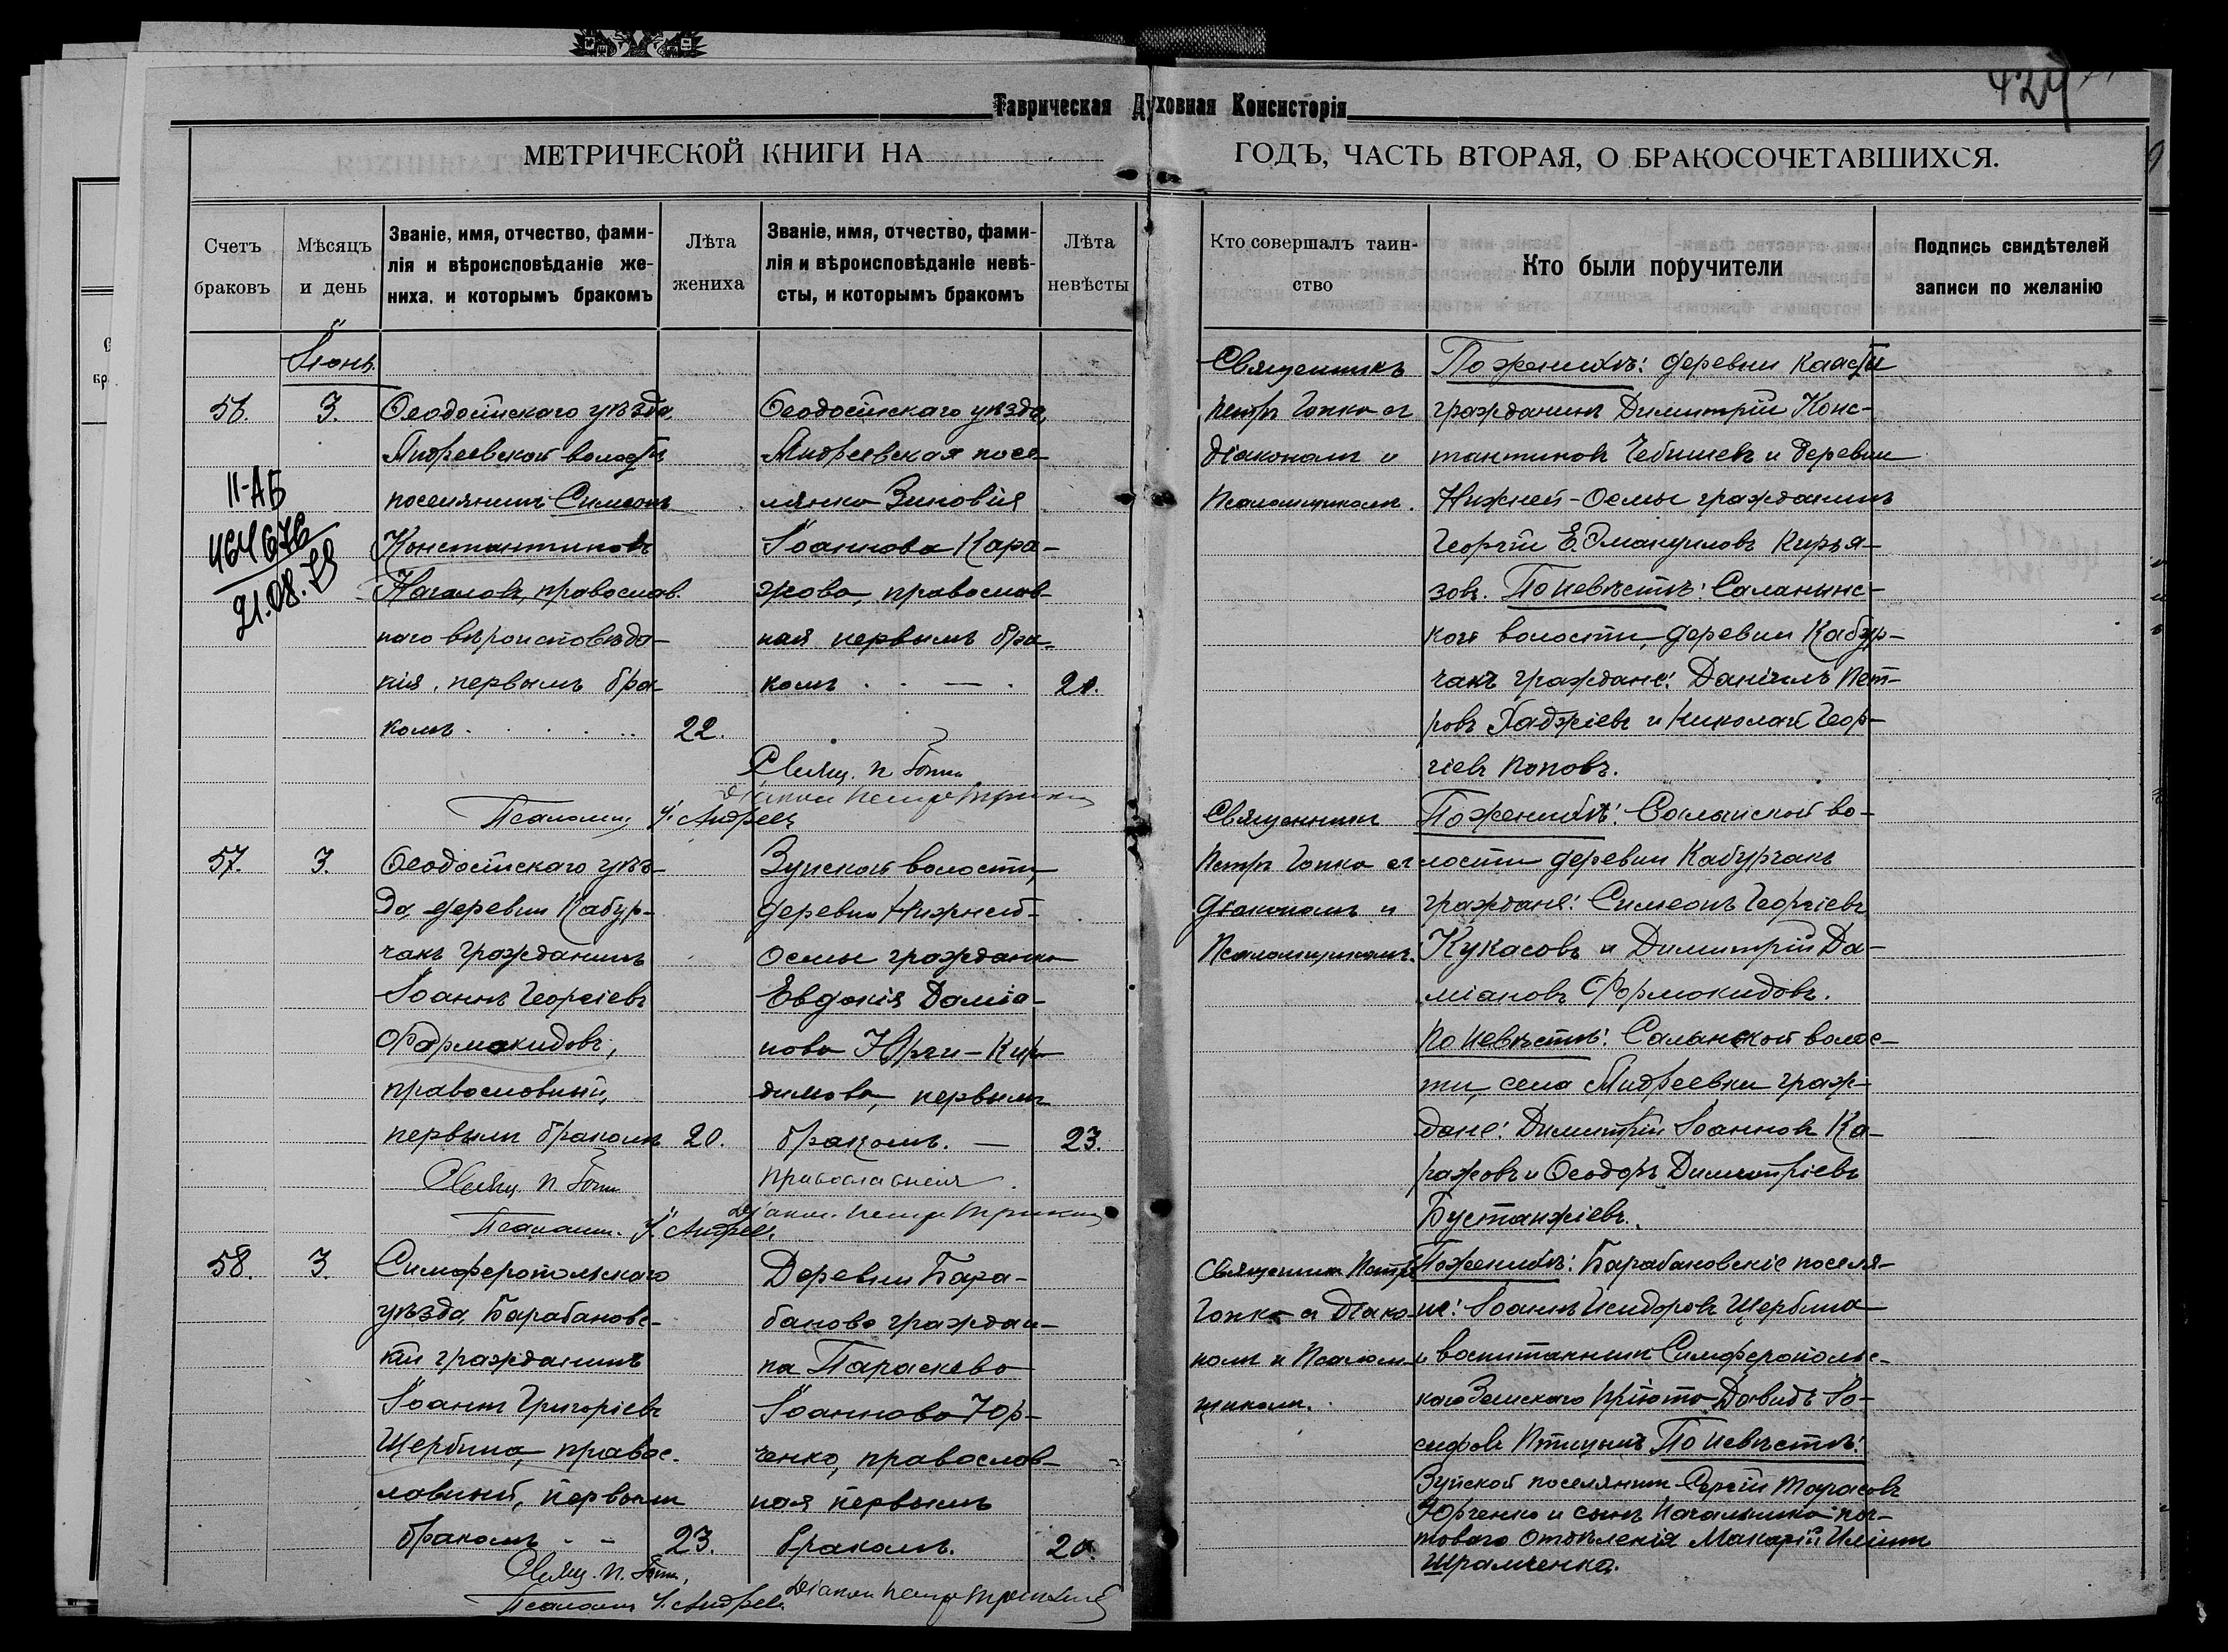 424
Таврическая Духовная Консисторія
МЕТРИЧЕСКОЙ КНИГИ НА ГОДЪ, ЧАСТЬ ВТОРАЯ, О БРАКОСОЧЕТАВШИХСЯ.
Счетъ браковъ
Мѣсяцъ и день
Званіе, имя, отчество, фами-
лія и вѣроисповѣданіе же-
ниха, и которымъ бракомъ
Лѣта жениха
Званіе, имя, отчество, фами-
лія и вѣроисповѣданіе невѣ-
сты, и которымъ бракомъ
Лѣта невѣсты
Кто совершалъ таин-
ство
Кто были поручители
Подпись свидѣтелей
записи по желанію
Іюнь.
56.
3.
II-АБ
464676
21.08.
Ѳеодосійскаго уѣзда,
Андреевской волости
поселянинъ Симеонъ
Константиновъ
православ-
наго вѣроисповѣда-
нія, первымъ бра-
комъ
22.
Ѳеодосійскаго уѣзда,
Андреевская посе-
лянка Зиновія
Іоаннова Кара-
жова, православ-
ная первымъ бра-
комъ
21.
Священникъ
Петръ Гопко съ
діакономъ и
Псаломщикомъ.
По женихѣ: деревни
гражданинъ Димитрій Конс-
тантиновъ Чебышевъ и деревни
Нижней-Осмы гражданинъ
Георгій Емануиловъ Кирья-
зовъ. По невѣстѣ: Саланынс-
кой волости, деревни Кабур-
чакъ граждане: Даніилъ Пет-
ровъ Хаджіевъ и Николай Геор-
гіевъ Поповъ.
Свящ. П. Гопко
Діаконъ Петръ
Псаломщ. І. Андреев
57.
3.
Ѳеодосійскаго уѣз-
да, деревни Кабур-
чакъ гражданинъ
Іоаннъ Георгіевъ
Фармакидовъ,
православный,
первымъ бракомъ
20.
Зуйской волости,
деревни Нижней-
Осмы гражданка
Евдокія Даміа-
нова
первымъ
бракомъ. —
православная
23.
Священникъ
Петръ Гопко съ
діакономъ и
Псаломщикомъ.
По женихѣ: Саланской во-
лости деревни Кабурчакъ
граждане: Симеонъ Георгіевъ
Кукасовъ и Димитрій Да-
міановъ Фармакидовъ.
По невѣстѣ: Саланской волос-
ти, села Андреевки граж-
дане: Димитрій Іоанновъ Ка-
ражовъ и Ѳеодоръ Димитріевъ
Бустанжіевъ.
Свящ. П. Гопко
Діакон. Петръ
Псаломщ. І. Андреев.
58.
3.
Симферопольскаго
уѣзда, Барабановс-
кій гражданинъ
Іоаннъ Григоріевъ
Щербина, правос-
лавный, первымъ
бракомъ - -
23.
Деревни Бара-
баново граждан-
ка Параскева
Іоаннова Юр-
ченко, православ-
ная первымъ
бракомъ.
20.
Священникъ Петръ
Гопко съ діако-
номъ и Псалом-
щикомъ.
По женихѣ: Барабановскіе поселя-
не: Іоаннъ Исидоровъ Щербина
и воспитанникъ Симферопольс-
каго Земскаго Пріюта Давидъ Іо-
сифовъ Птицынъ По невѣстѣ:
Зуйской поселянинъ Сергій Тарасовъ
Юрченко и сынъ Начальника поч-
товаго отдѣленія Макарій Иліинъ
Шрамченко.
Свящ. П. Гопко
Псаломщ. І. Андреев.
Діаконъ Петръ